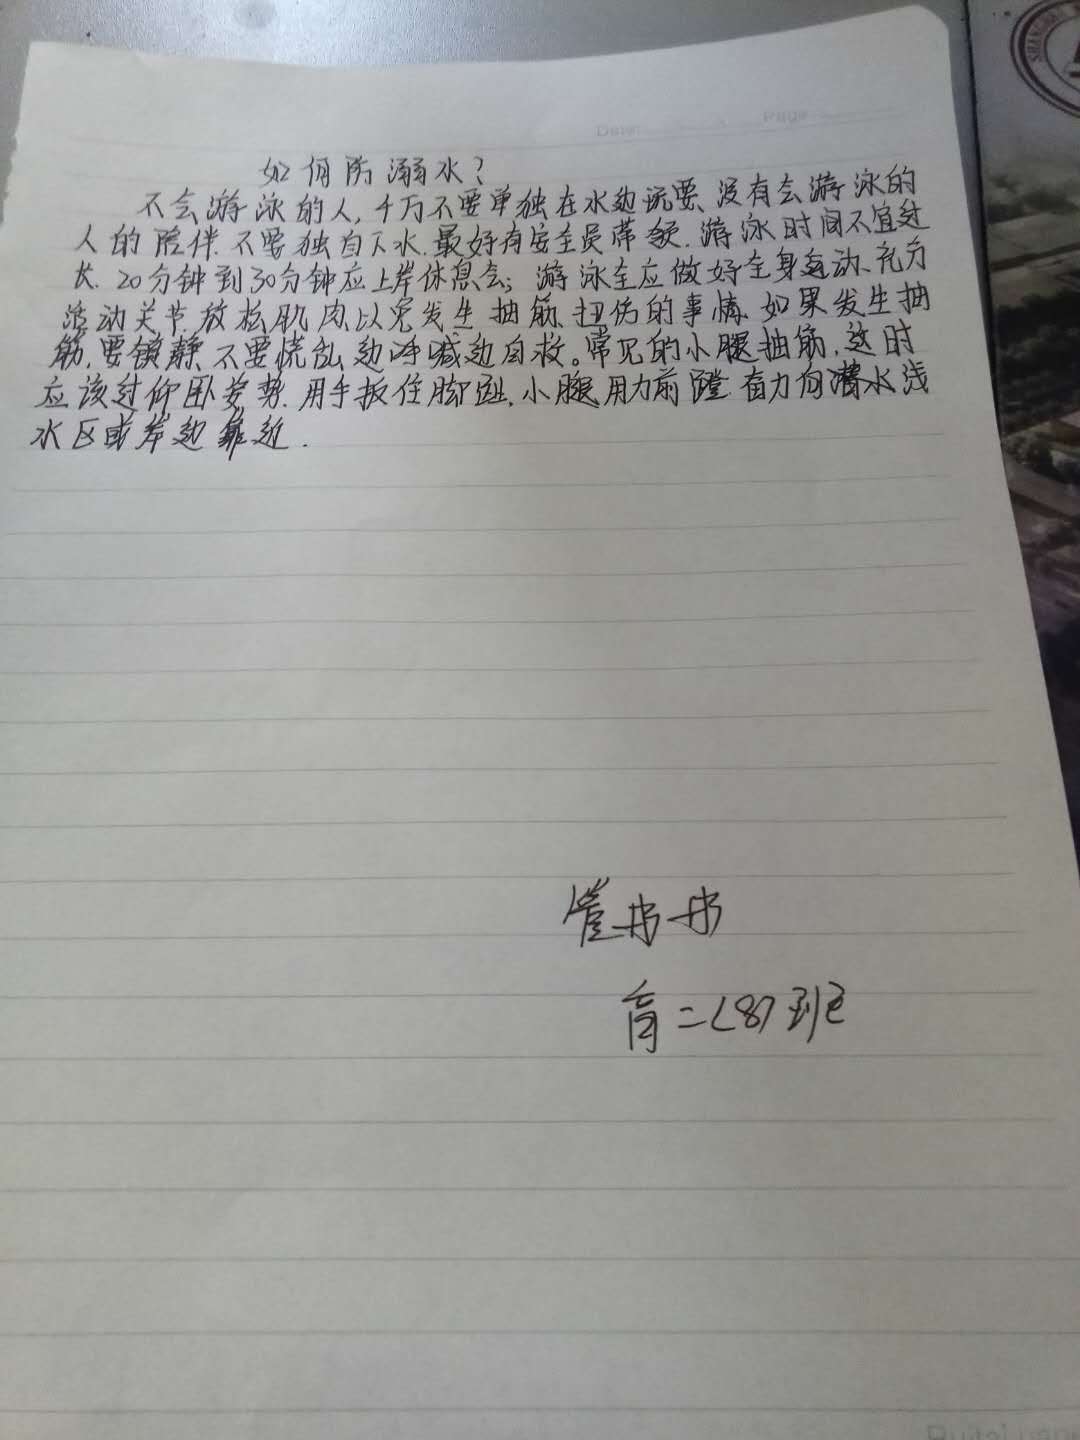 Date: Page
如何防溺水?
不会游泳的人,千万不要单独在水边玩耍、没有会游泳的
人的陪伴.不要独自下水.最好有安全员带领.游泳时间不宜过
长.20分钟到30分钟应上岸休息会;游泳全应做好全身运动、充分
活动关节.放松肌肉、以免发生抽筋、扭伤的事情.如果发生抽
筋,要镇静、不要慌乱、边呼喊边自救。常见的小腿抽筋,这时
应该过仰卧姿势.用手扳住脚趾,小腿用力前蹬.奋力向水浅
水区或岸边靠近.
管丹丹
育二(8)班